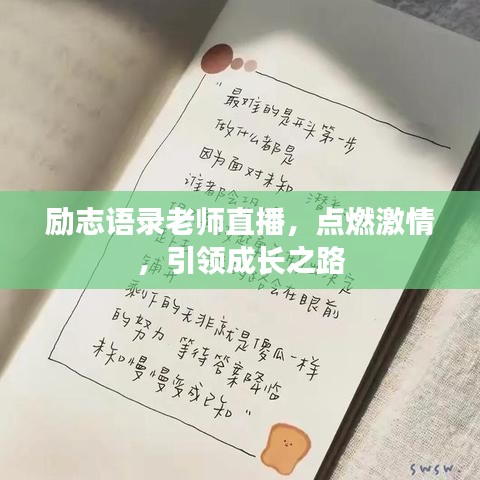 "最难的是开头第一步
做什么都是
因为面对未知
谁都会
励志语录老师直播，点燃激情
，引领成长之路
会在眼前
剩下的无非就是傻瓜一样
的努力 等待答案降临
未知慢慢变成已知"
swsw.